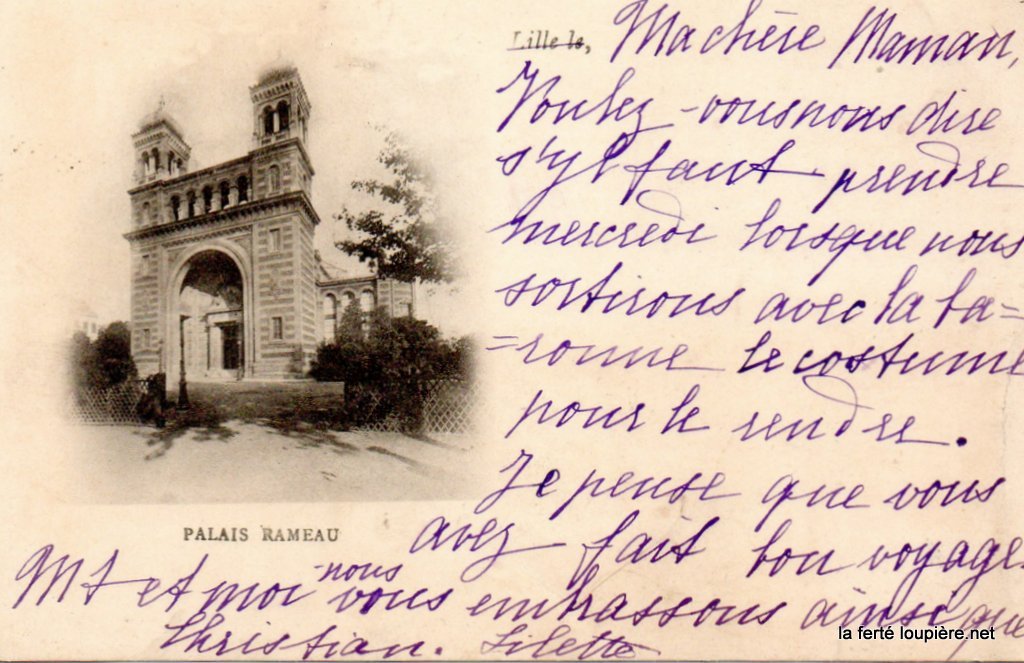 Lille le,
Ma chère Maman,
Voulez-vous nous dire
s'yl faut prendre
mercredi lorsque nous
sortirons avec la ba=
=ronne le costume
pour le rendre.
Je pense que vous
avez fait bon voyage.
Mt et moi nous vous embrassons ainsi que
Christian. Lilette
PALAIS RAMEAU
la ferté loupière.net